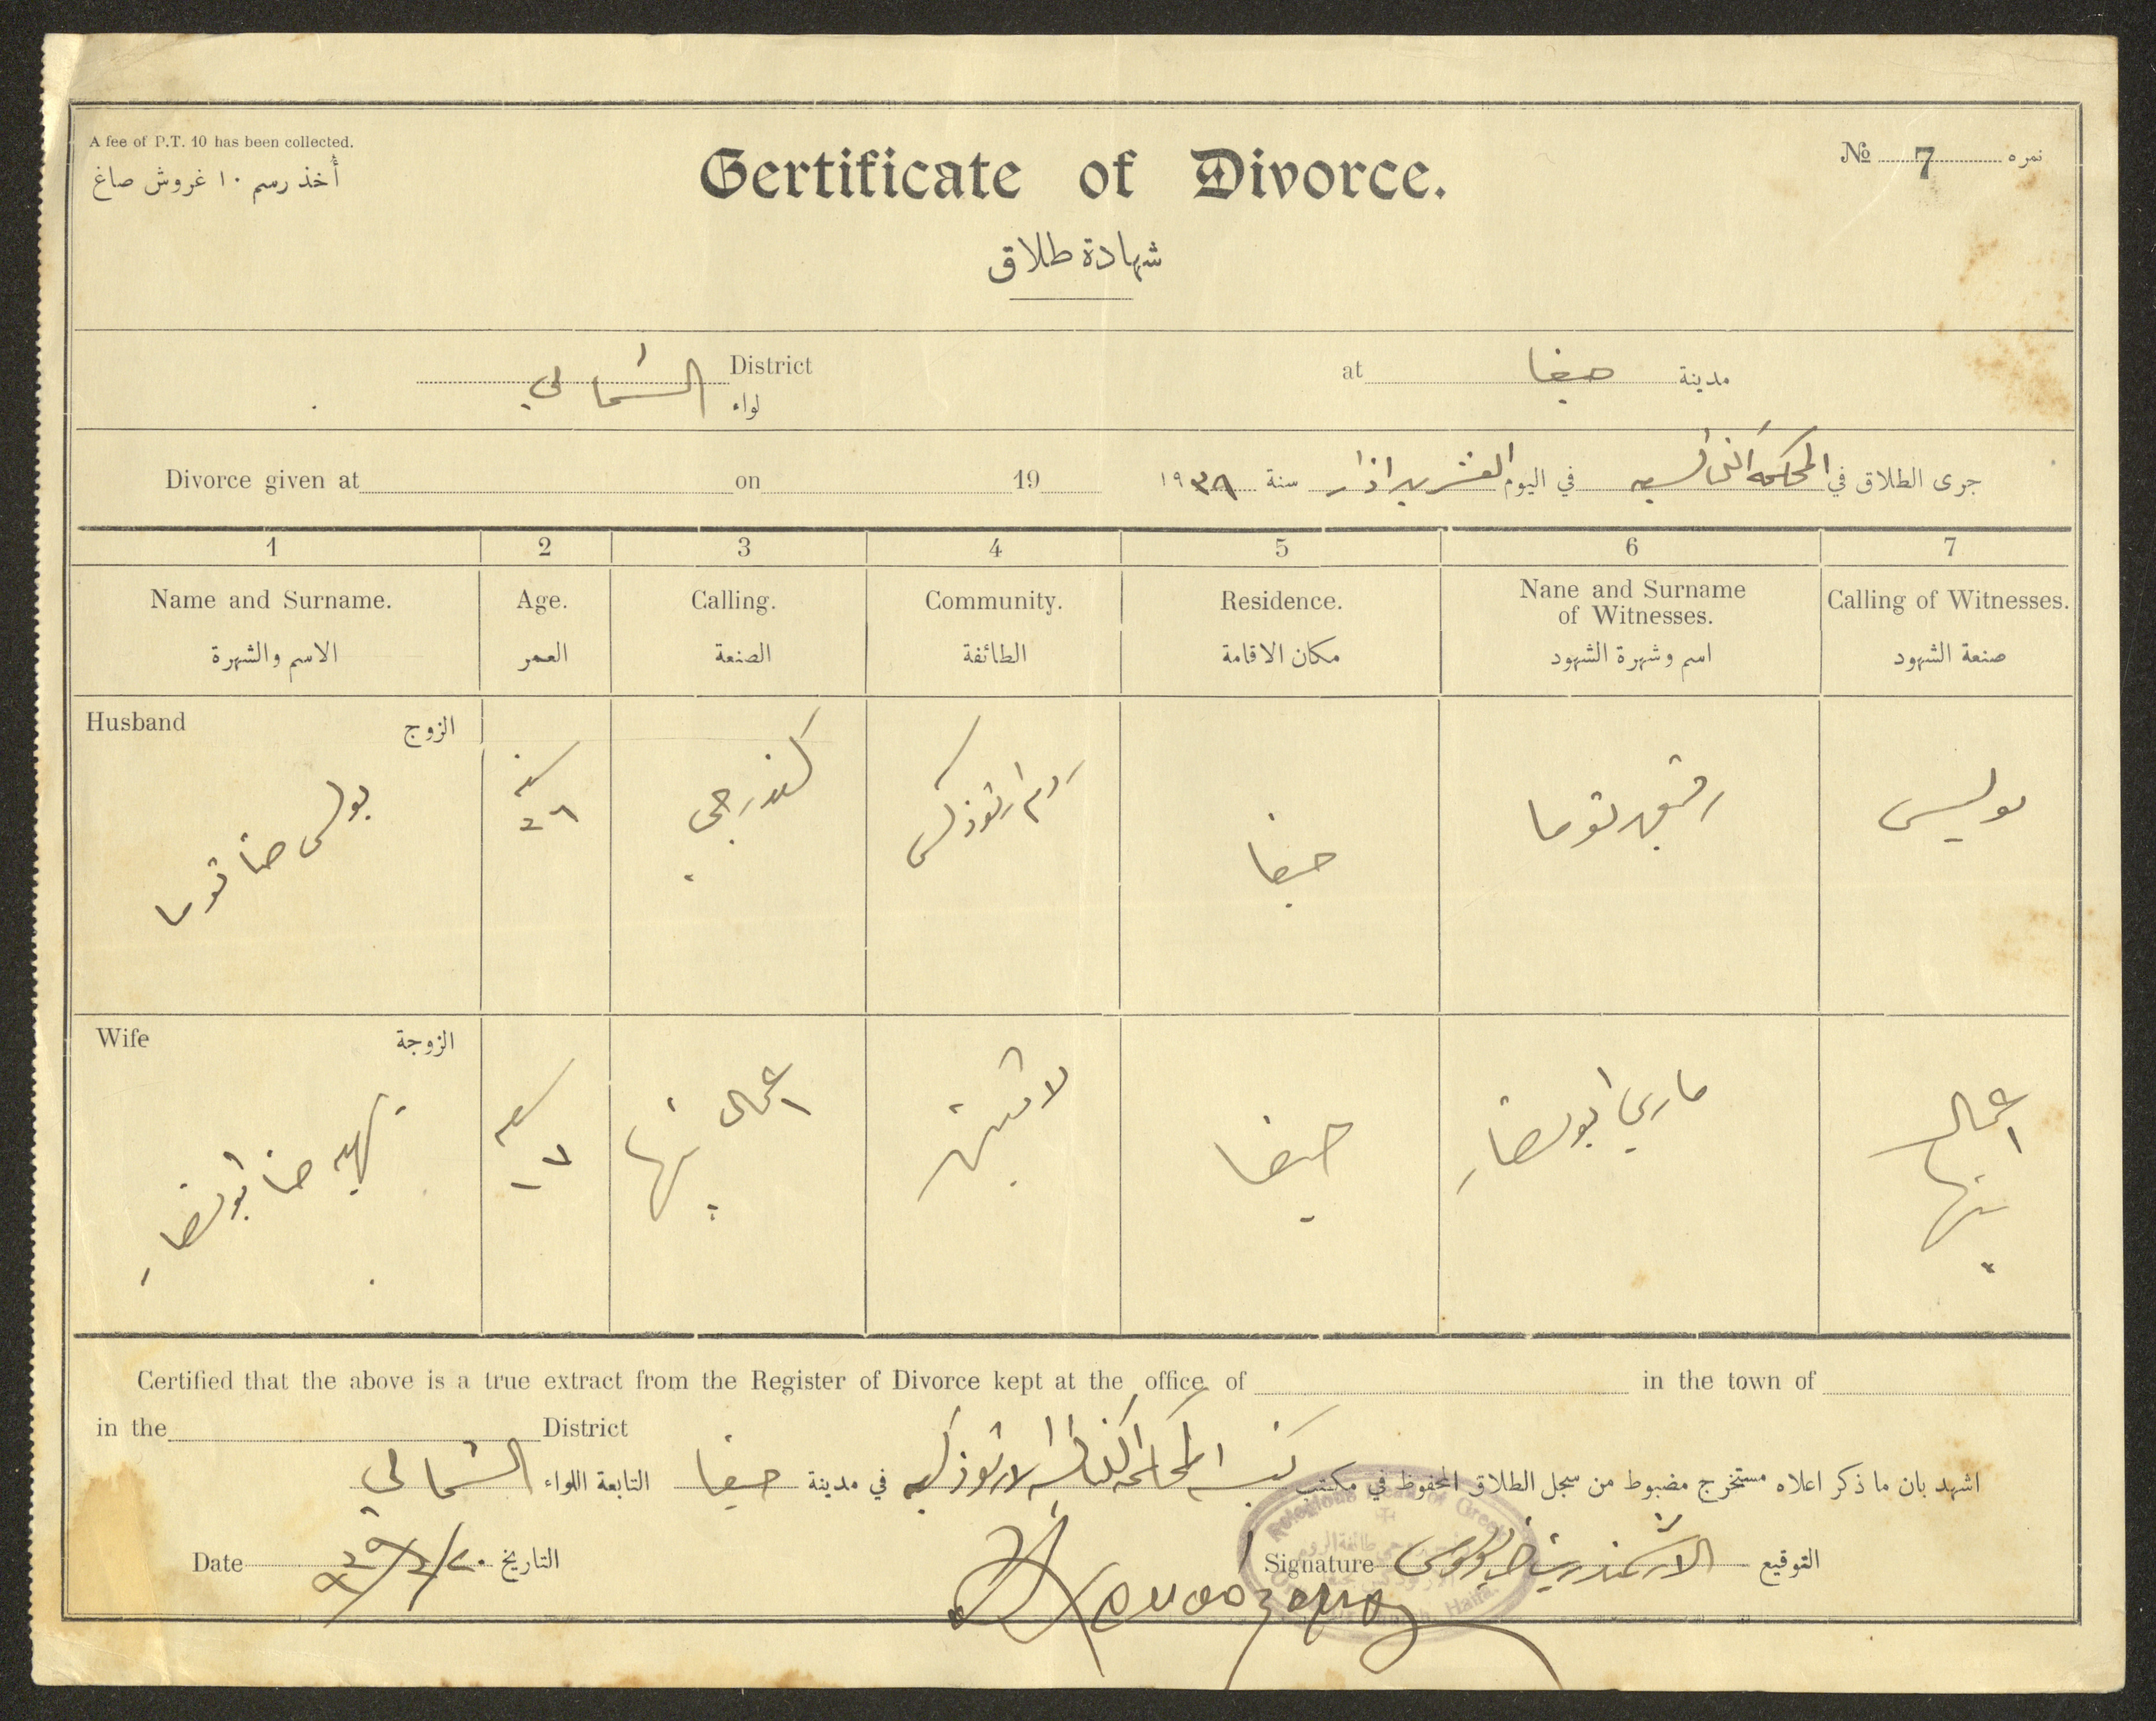 A fee of P.T. 10 has been collected.
أخذ رسم ١٠ غروش صاغ
Certificate of Divorce.
شهادة طلاق
№ 7 نمره
District لواء الشمالي
at مدينة حيفا
Divorce given at on 19
جرى الطلاق في المحكمة الكنائسيه في اليوم العشرين اذار سنة ١٩٣٩
1 2 3 4 5 6 7
Name and Surname. Age. Calling. Community. Residence. Nane and Surname of Witnesses. Calling of Witnesses.
الاسم والشهرة العمر الصنعة الطائفة مكان الاقامة اسم وشهرة الشهود صنعة الشهود
Husband الزوج
بولس حنا توما
سنه ٢٦
كندرجي
روم ارثوذكس
حيفا
رفيق توما
بوليس
Wife الزوجة
بهيه حنا ابو نصار
سنه ١٧
اعمال بيتها
لاتينيه
حيفا
ماري ابو نصار
اعمال بيتها
Certified that the above is a true extract from the Register of Divorce kept at the office of in the town of
in the District
اشهد بان ما ذكر اعلاه مستخرج مضبوط من سجل الطلاق المحفوظ في مكتب المحكمه الكنائسيه الارثوذكسيه في مدينة حيفا التابعة اللواء الشمالي
Date التاريخ ٢٠/٣/٩٣٩
Signature الارشمندريت التوقيع
Religious Head of Greek
Haifa